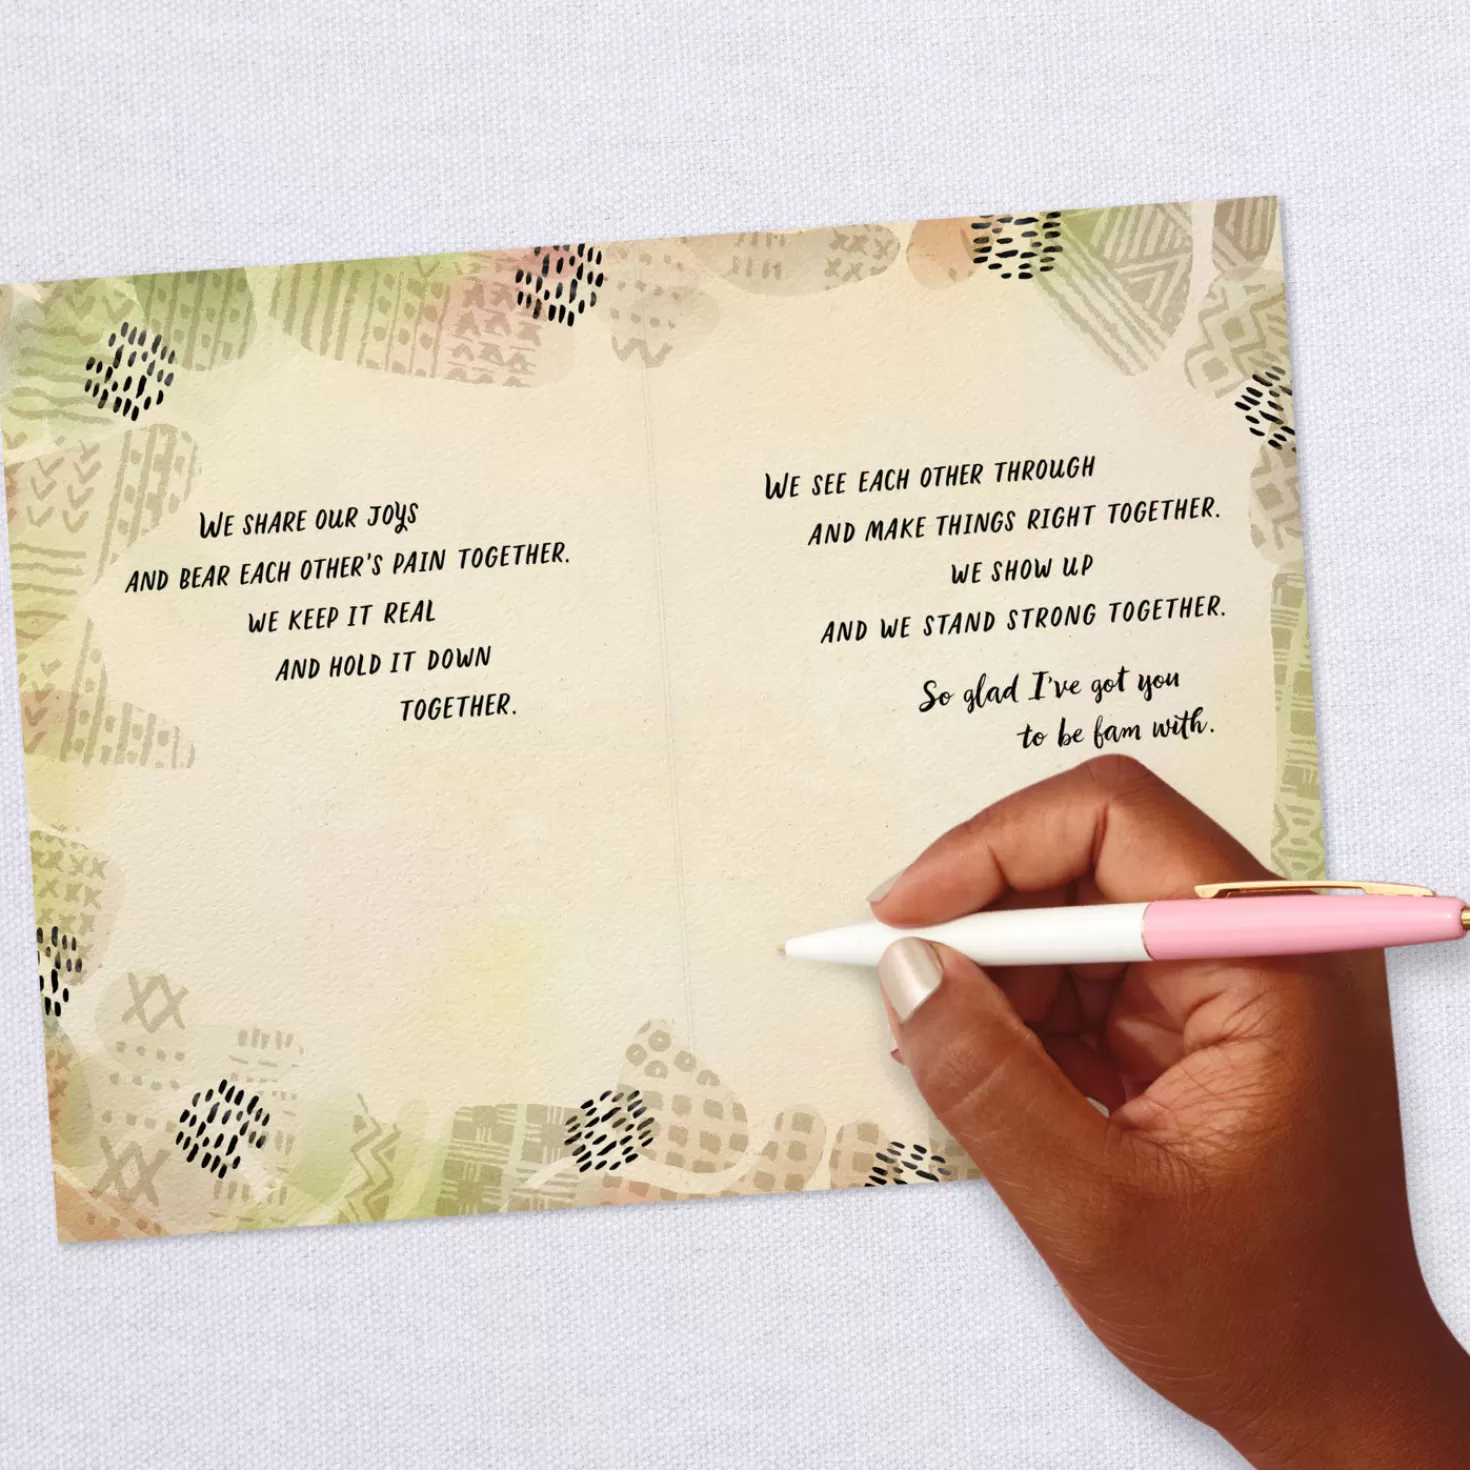 WE SHARE OUR JOYS
AND BEAR EACH OTHER'S PAIN TOGETHER.
WE KEEP IT REAL
AND HOLD IT DOWN
TOGETHER.
WE SEE EACH OTHER THROUGH
AND MAKE THINGS RIGHT TOGETHER.
WE SHOW UP
AND WE STAND STRONG TOGETHER.
So glad I've got you
to be fam with.